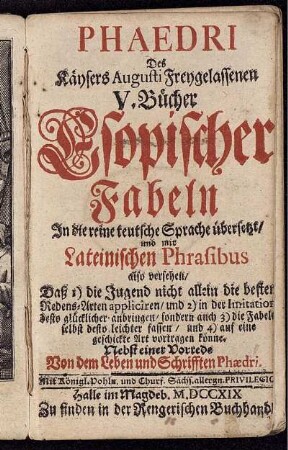 PHAEDRI
Des
Käysers Augusti Freygelassenen
V. Bücher
Esopischer
Fabeln
In die reine teutsche Sprache übersetzt/
und mit
Lateinischen Phrasibus
also versehen/
Daß 1) die Jugend nicht allein die besten
Redens-Arten appliciren/ und 2) in der Imitation
desto glücklicher anbringen/ sondern auch 3) die Fabeln
selbst desto leichter fassen/ und 4) auf eine
geschickte Art vortragen könne.
Nebst einer Vorrede
Von dem Leben und Schrifften Phædri.
Mit Königl. Pohln. und Churf. Sächs. allergn. PRIVILEGIO
Halle im Magdeb. M,DCCXIX
Zu finden in der Rengerischen Buchhandl.